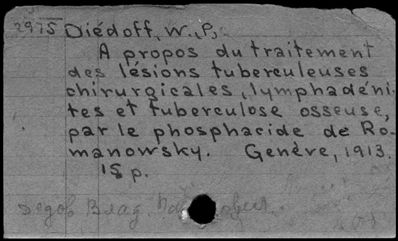 2975 Diédoff, W. P.
A propos du traitement
des lésions tuberculeuses
chirurgicales, lymphadéni-
tes et tuberculose osseuse,
par le phosphacide de Ro-
manowsky. Genève, 1913.
15 p.
Дедов Влад.